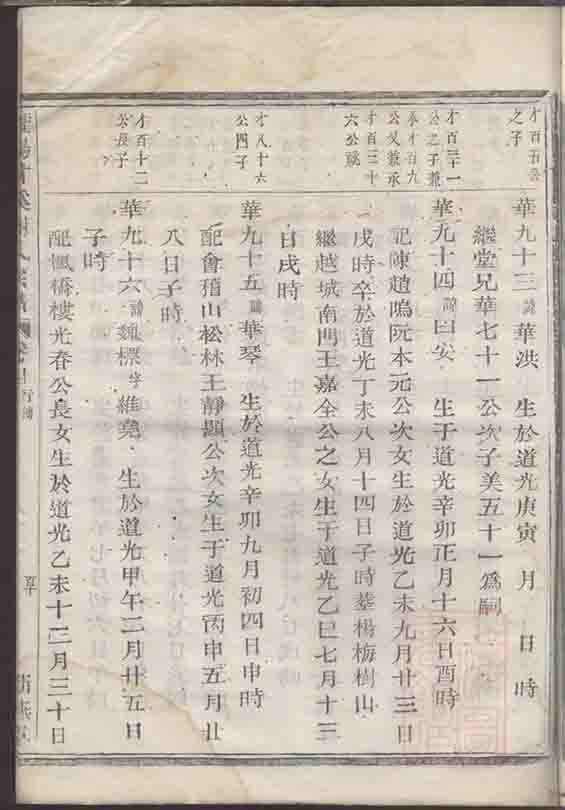 才百五公
之子
華九十三諱華洪 生於道光庚寅 月 日 時
繼堂兄華七十一公次子美五十一爲嗣
才百三十一
公之子兼
承才百九
公又兼承
才百二十
六公祧
華九十四諱曰安 生于道光辛卯正月十六日酉時
配陳趙塢阮本元公次女生於道光乙未九月廿三日
戌時卒於道光丁未八月十四日子時墓楊梅樹山
繼越城南門王嘉全公之女生于道光乙巳七月十三
日戌時
才八十六
公四子
華九十五諱華琴 生於道光辛卯九月初四日申時
配會稽山松林王靜顯公次女生于道光丙申五月廿
八日子時
才百十二
公長子
華九十六諱魏標字維堯 生於道光甲午二月廿五日
子時
配楓橋樓光春公長女生於道光乙未十二月三十日